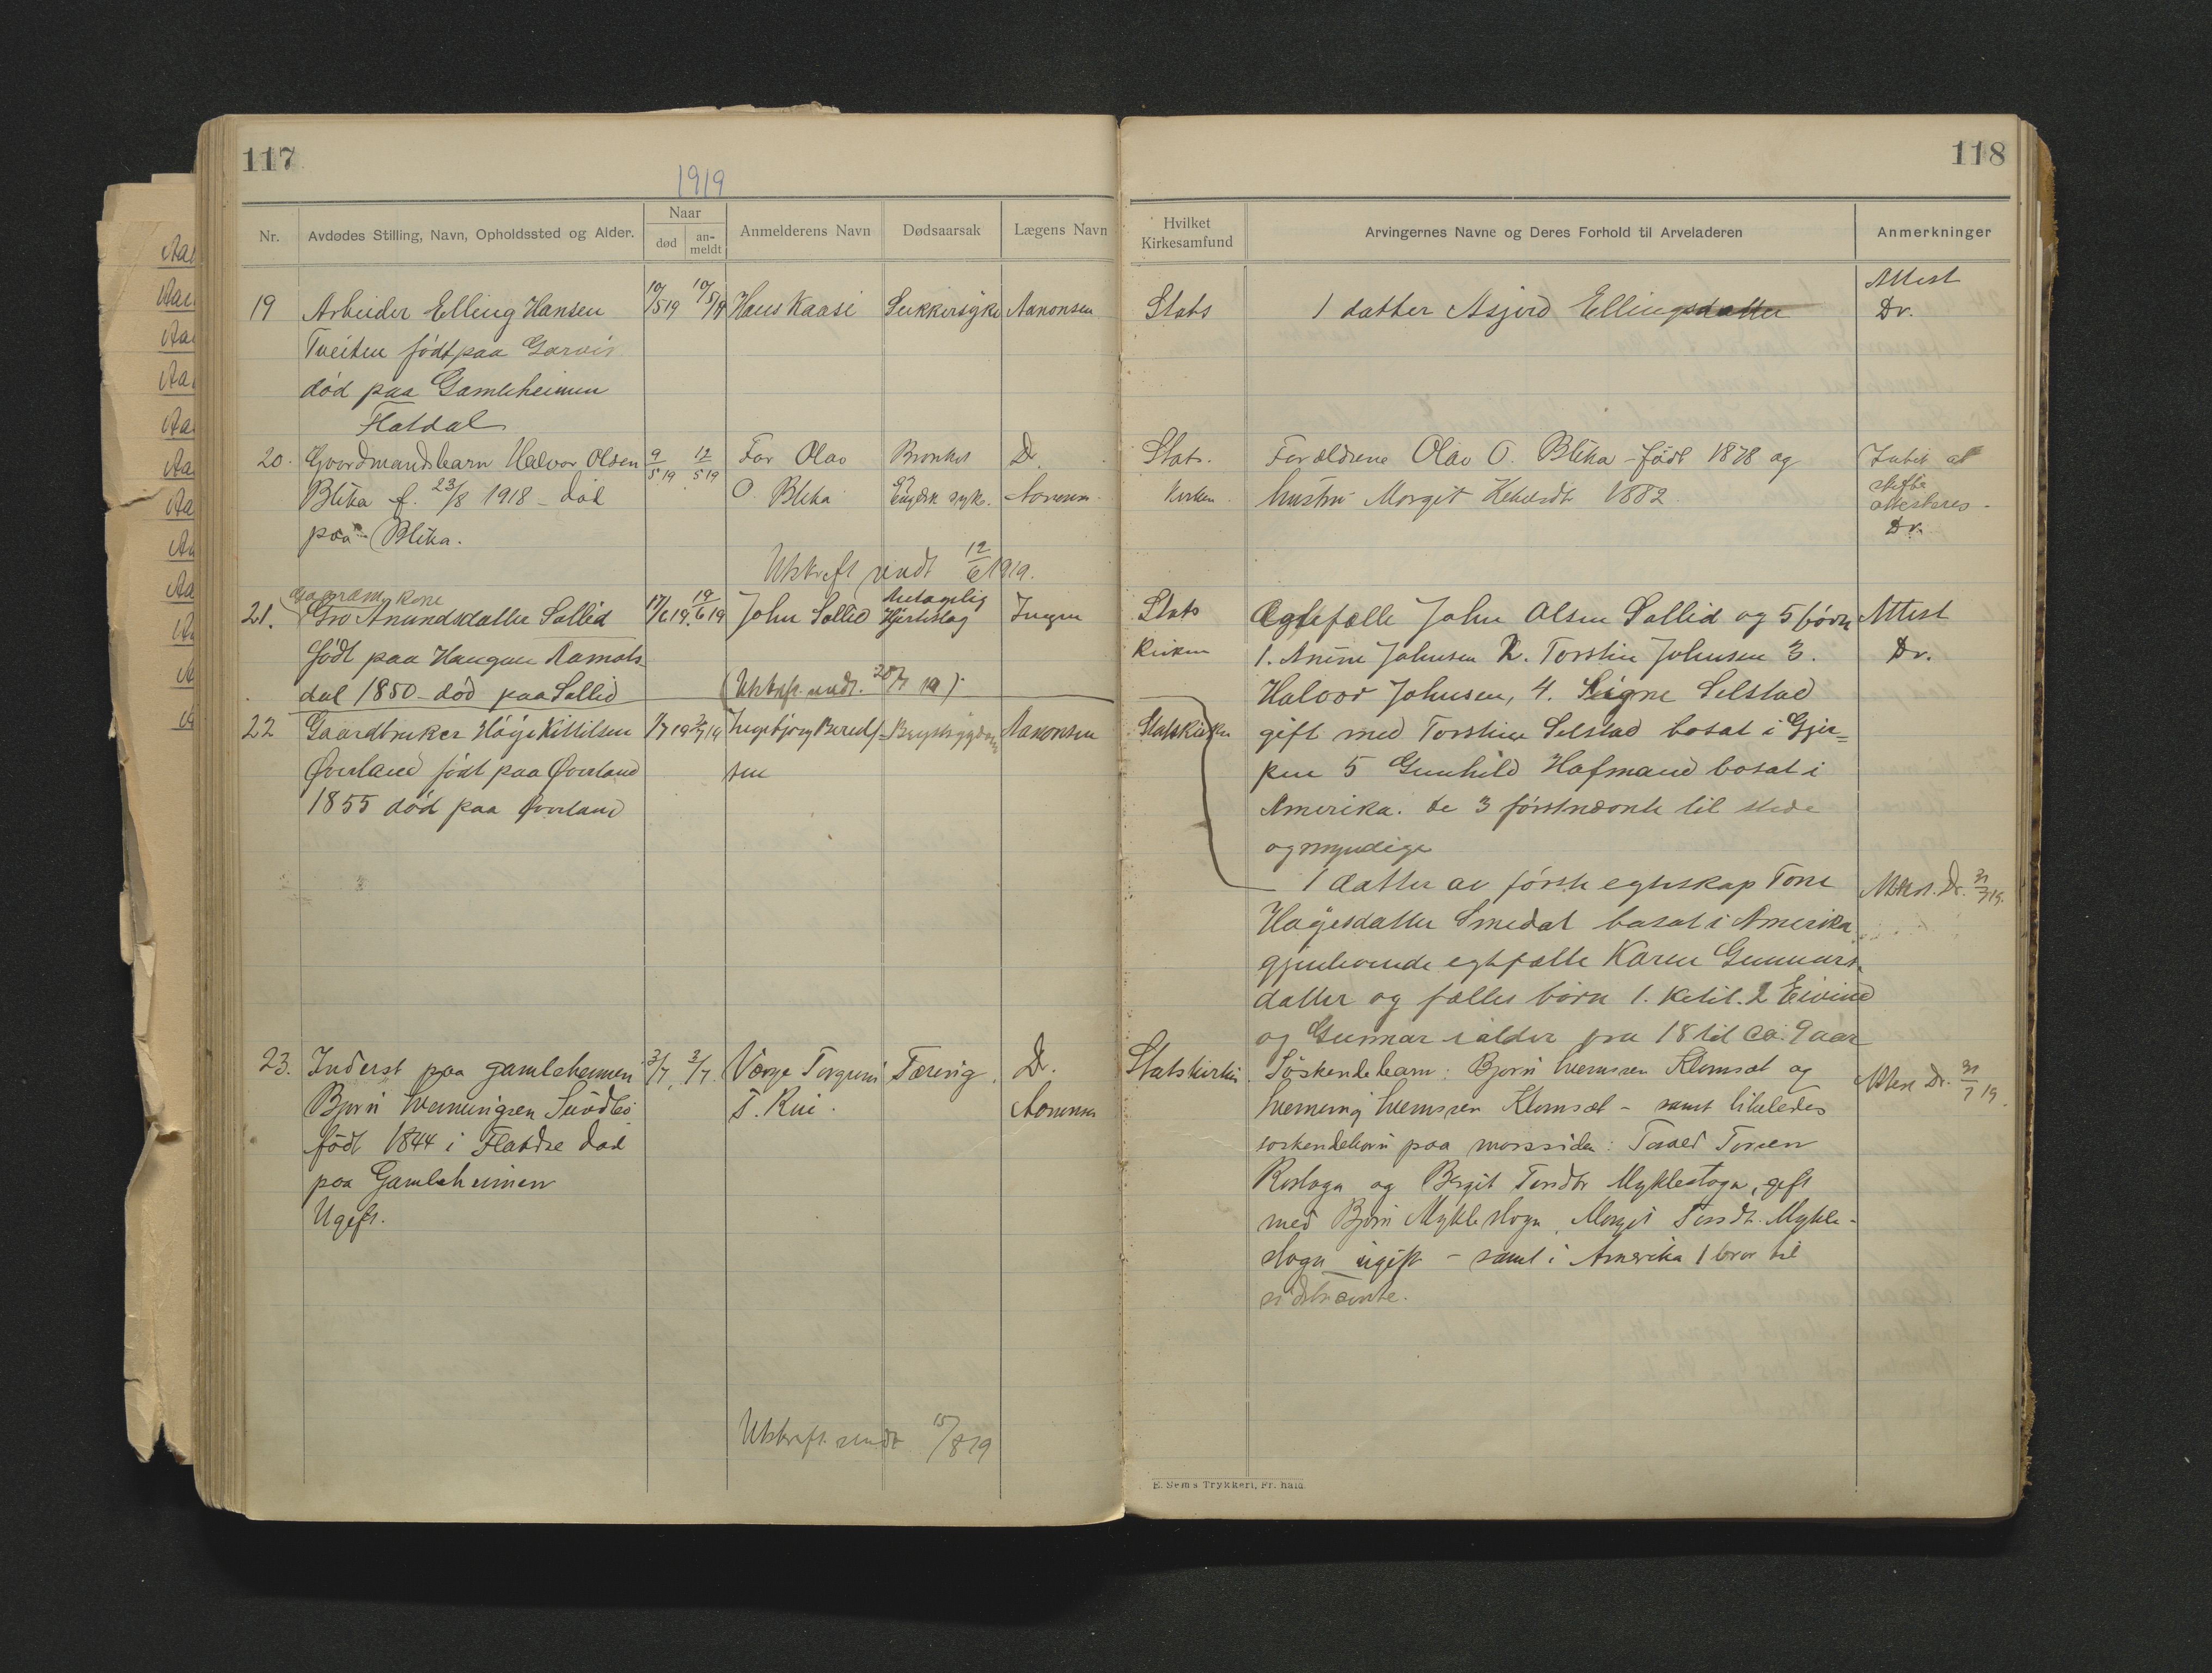 117
1919
Nr.
Avdødes Stilling, Navn, Opholdssted og Alder.
Naar
død
an-
meldt
Anmelderens Navn
Dødsaarsak
Lægens Navn
19
Arbeider Elling Hansen
Tveiten født paa Garvis
død paa Gamleheimen
Flatdal
10/5 19
10/5 19
Hans Kaasi
Sukkersyke
Aanonsen
20.
Gaardmandsbarn Halvor Olsen
Blika f. 23/8 1918 - død
paa Blika.
9/5 19
12/5 19
Far Olav
O. Blika
Bronkit
og
Engelsk syke.
Dr.
Aanonsen
Utskrift sendt 12/6 1919.
21.
Gaardm. kone
Gro Anundsdatter Sollid
født paa Haugan Aamots-
dal 1850 - død paa Sollid
17/6 19
19/6 19
John Sollid
Antagelig
Hjerteslag
Ingen
(Utskrift sendt. 20/7 19)
22
Gaardbruker Høge Kittilsen
Øverland født paa Øverland
1855 død paa Øverland
1/7 19
2/7 19
Ingebjørg
sen
Brystsygdom
Aanonsen
23.
Inderst paa gamleheimen
Bjørn
født 1844 i Flatdal død
paa Gamleheimen
Ugift.
3/7
3/7
Værge Torgrim
T. Rui.
Tæring.
Dr.
Aanonsen
Utskrift sendt 15/8 19
118
Hvilket
Kirkesamfund
Arvingernes Navne og Deres Forhold til Arveladeren
Anmerkninger
Stats
1 datter Asjerd Ellingsdatter
Attest
Dr.
Stats.
Kirken
Forældrene Olav O. Blika - født 1878 og
hustru Margit 1882
Intet at
skifte
attesteres -
Dr.
Stats
Kirken
Egtefælle John Olsen Sollid og 5 børn
1. Johnsen 2. Torstin Johnsen 3.
Halvor Johnsen, 4. Signe Selstad
gift med Torstein Selstad bosat i Gjer-
pen 5 Gunhild Hafmand bosat i
Amerika. de 3 førstnævnte til stede
og myndige
Attest
Dr.
Statskirken
1 datter av første egteskap Tone
Høgesdatter Smedal bosat i Amerika
gjenlevende egtefælle Karen Gunnars-
datter og fælles børn 1. Ketil. 2 Eivind
og Gunnar i alder fra 18 til ca. 9 aar
Attest. Dr. 31/7 19.
Statskirken.
Søskendebarn: Bjørn og
- samt likeledes
søskendebørn paa morssiden:
og Birgit Mykleastoga, gift
med Bjørn Myklestoga, Margit Mykle-
stoga ugift - samt i Amerika 1 bror til
sidstnævnte.
Attest Dr. 31/7 19.
E. Sem's Trykkeri, Fr. hald.